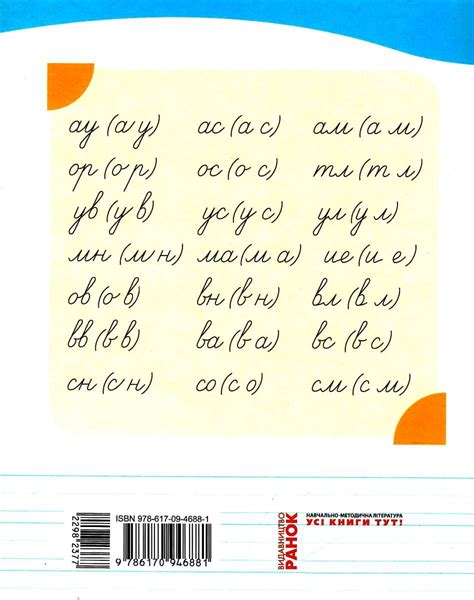 ау (а у) ас (а с) ам (а м)
ор (о р) ос (о с) тл (т л)
ув (у в) ус (у с) ул (у л)
мн (м н) ма (м а) ие (и е)
ов (о в) вн (в н) вл (в л)
вв (в в) ва (в а) вс (в с)
сн (с н) со (с о) см (с м)
2298 2377
ISBN 978-617-09-4688-1
9 786170 946881
ВИДАВНИЦТВО
РАНОК
НАВЧАЛЬНО-МЕТОДИЧНА ЛІТЕРАТУРА
УСІ КНИГИ ТУТ!